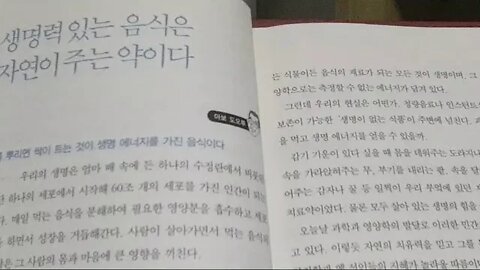 생명력 있는 음식은
자연이 주는 약이다
뿌리면 싹이 트는 것이 생명 에너지를 가진 음식이다
우리의 생명은 엄마 배 속에 든 하나의 수정란에서
하나의 세포에서 시작해 60조 개의 세포를 가진 인간이
매일 먹는 음식을 분해하여 필요한 영양분을 흡수하고
하면서 성장을 거듭해간다. 사람이 살아가면서 먹는
은 그 사람의 몸과 마음에 큰 영향을 끼친다.
든 식물이든 음식의 재료가 되는 모든 것이 생명이며, 그
양학으로는 측정할 수 없는 에너지가 담겨 있다.
그런데 우리의 현실은 어떤가. 정량음료나 인스턴트
보존이 가능한 '생명이 없는 식품'이 주변에 넘친다.
을 먹고 생명 에너지를 얻을 수 있을까.
감기 기운이 있다 싶을 때 몸을 데워주는 도라지나
속을 가라앉혀주는 무, 부기를 내리는 팥, 속을
어주는 감자나 꿀 등 일찍이 우리 부엌에 있던
치료약이었다. 물론 모두 살아 있는 생명의 힘을
오늘날 과학과 영양학의 발달로 이러한 민간
고 있다. 이렇듯 자연의 치유력을 믿고 그를